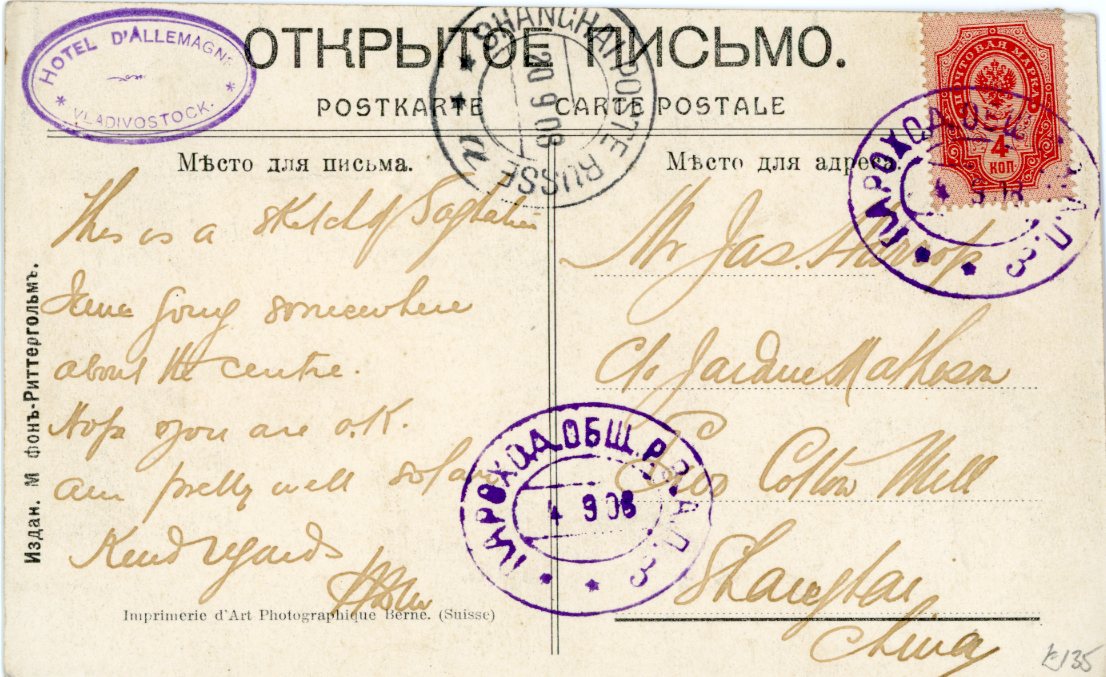 HOTEL D'ALLEMAGNE
* VLADIVOSTOCK. *
ОТКРЫТОЕ ПИСЬМО.
SHANGHAI POSTE RUSSE
20 9 08
a
POSTKARTE CARTE POSTALE
ПОЧТОВАЯ МАРКА
4
КОП
ПАРОХОД. ОБЩ.
4 9 08
Мѣсто для письма.
Мѣсто для адреса.
This is a sketch of Saghalien
I am going somewhere
about the centre.
Hope you are O.K.
am pretty well so far
Kind regards
Mr Jas.
C/o Jardine Matheson
Cotton Mill
Shanghai
China
ПАРОХОД. ОБЩ.
4 9 08
Издан. М фонъ-Риттергольмъ.
Imprimerie d'Art Photographique Berne. (Suisse)
135